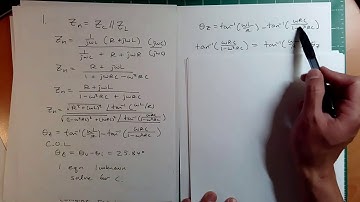 1. Z_n = Z_C // Z_L
Z_n = 1/(jωC) (R + jωL) / (1/(jωC) + R + jωL) (jωC)/(jωC)
Z_n = (R + jωL) / (1 + jωRC - ω²LC)
Z_n = (R + jωL) / (1 - ω²LC + jωRC)
Z_n = √(R² + (ωL)²) /tan⁻¹(ωL/R) / √((1-ω²LC)² + (ωRC)²) /tan⁻¹(ωRC/(1-ω²LC))
θ_Z = tan⁻¹(ωL/R) - tan⁻¹(ωRC/(1-ω²LC))
θ_Z = θ_v - θ_i = 25.84°
1 eqn 1 unknown
solve for C.
θ_Z = tan⁻¹(ωL/R) - tan⁻¹(ωRC/(1-ω²LC))
tan⁻¹(ωRC/(1-ω²LC)) = tan⁻¹(